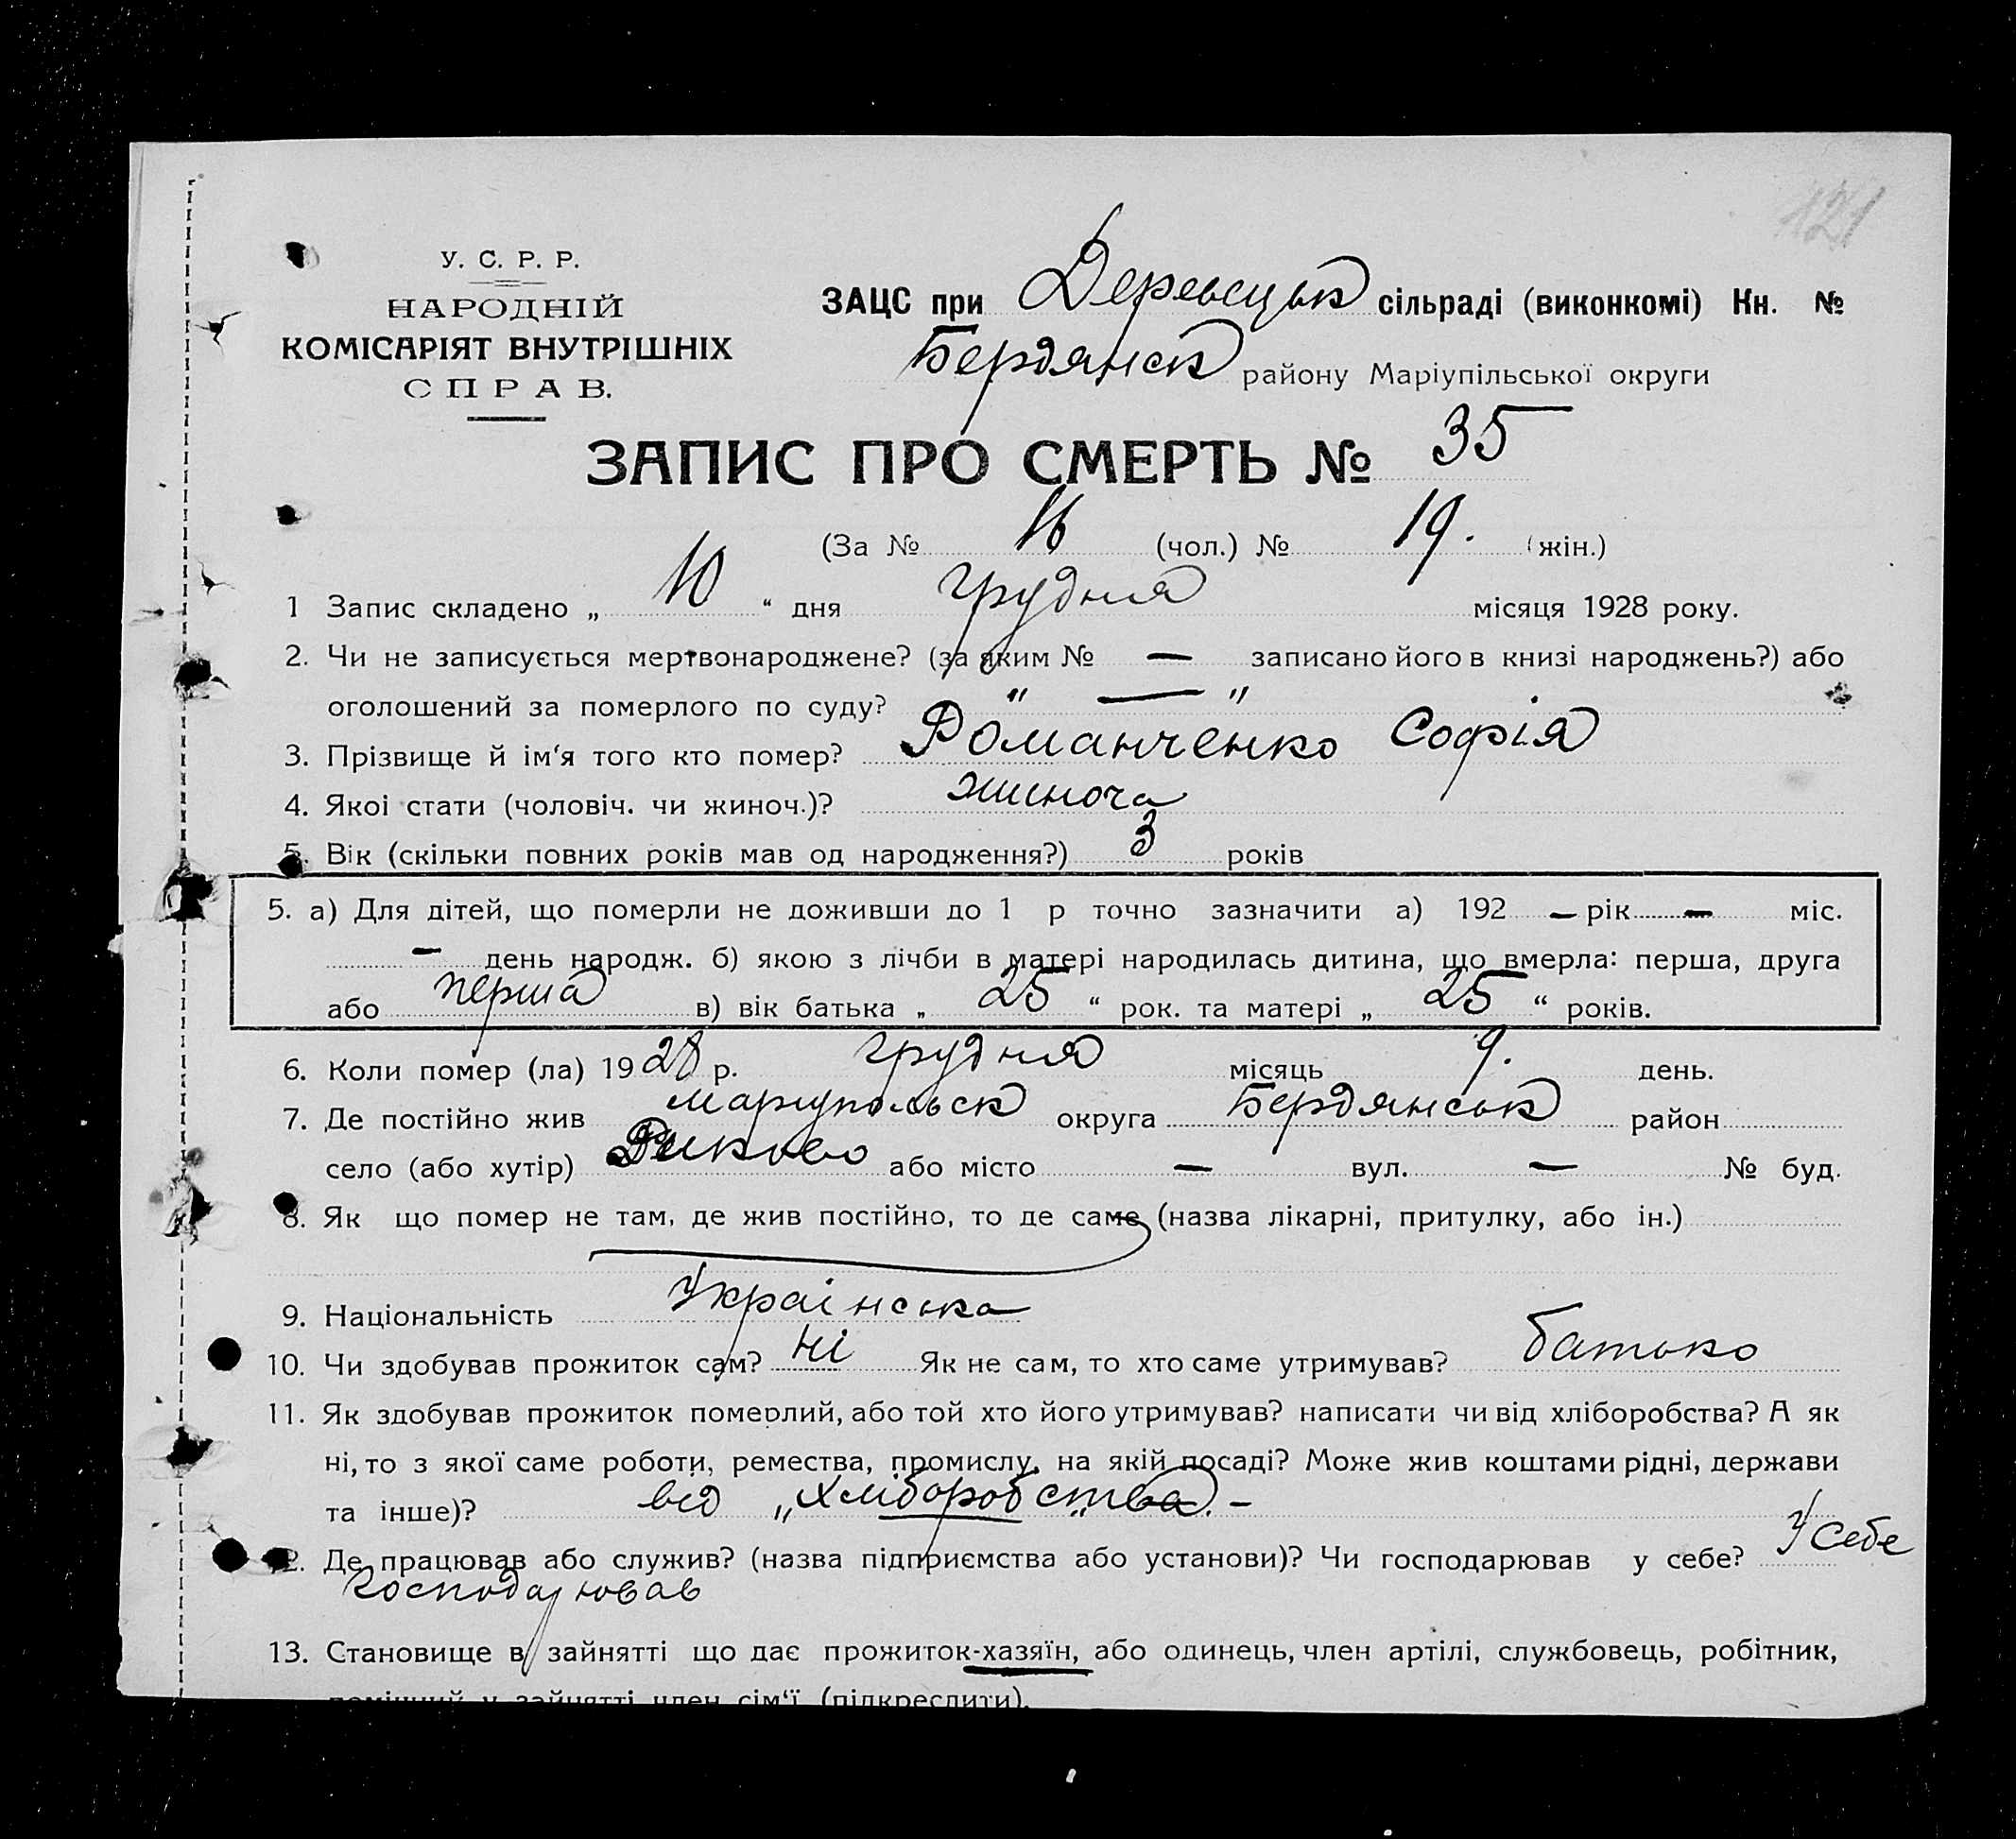 121
У. С. Р. Р.
НАРОДНІЙ
КОМІСАРІЯТ ВНУТРІШНІХ
СПРАВ.
ЗАЦС при сільраді (виконкомі) Кн. №
Бердянськ району Маріупільської округи
ЗАПИС ПРО СМЕРТЬ № 35
(За № 16 (чол.) № 19. (жін.)
1 Запис складено „ 10 “ дня грудня місяця 1928 року.
2. Чи не записується мертвонароджене? (за яким № — записано його в книзі народжень?) або
оголошений за померлого по суду? " — "
3. Прізвище й ім‘я того кто помер? Романченко Софія
4. Якоі стати (чоловіч. чи жиноч.)? жиноча
5. Вік (скільки повних років мав од народження?) 3 років
5. а) Для дітей, що померли не доживши до 1 р точно зазначити а) 192 — рік — міс.
— день народж. б) якою з лічби в матері народилась дитина, що вмерла: перша, друга
або перша в) вік батька „ 25 “ рок. та матері „ 25 “ років.
6. Коли помер (ла) 1928 р. грудня місяць 9. день.
7. Де постійно жив маріупольськ округа Бердянськ район
село (або хутір) Риково або місто — вул. — № буд.
8. Як що помер не там, де жив постійно, то де саме (назва лікарні, притулку, або ін.)
9. Національність Українська
10. Чи здобував прожиток сам? ні Як не сам, то хто саме утримував? батько
11. Як здобував прожиток померлий, або той хто його утримував? написати чи від хліборобства? А як
ні, то з якої саме роботи, ремества, промислу, на якій посаді? Може жив коштами рідні, держави
та інше)? від „хліборобства". -
12. Де працював або служив? (назва підприємства або установи)? Чи господарював у себе? У себе
господарював
13. Становище в зайнятті що дає прожиток-хазяїн, або одинець, член артілі, службовець, робітник,
помічний у зайнятті член сім‘ї (підкреслити).